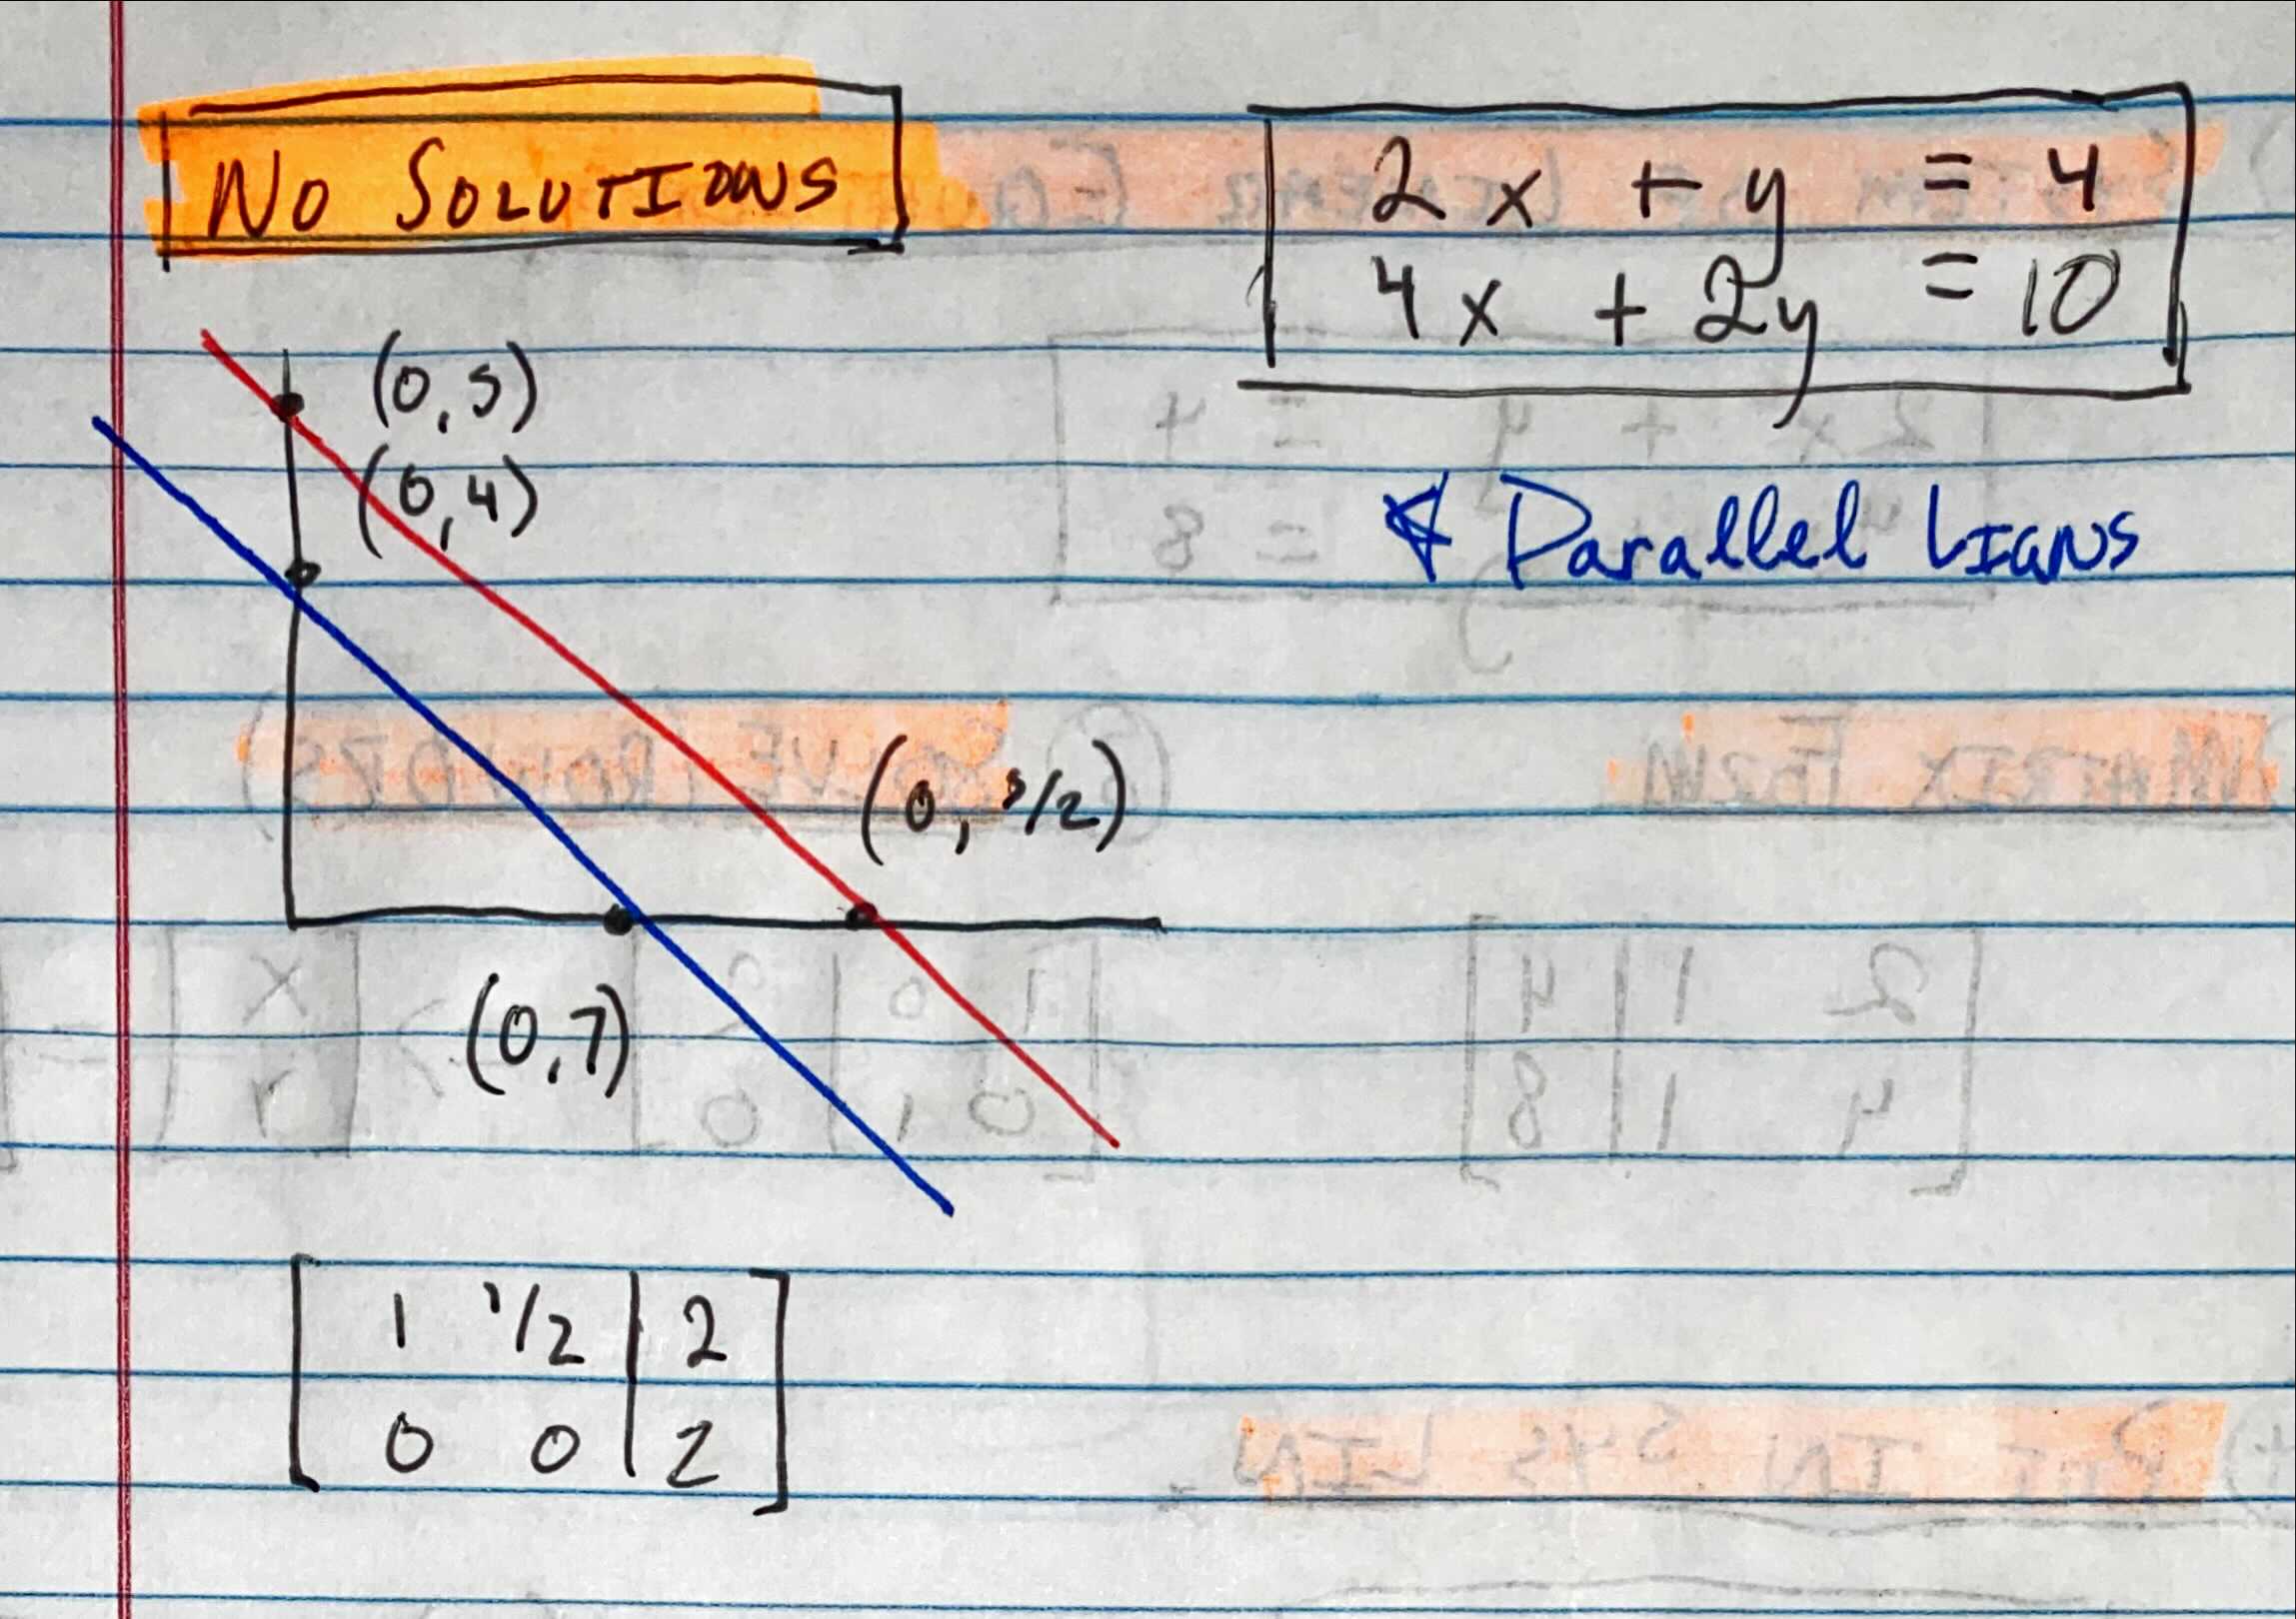 No Solutions
2x + y = 4
4x + 2y = 10
(0,5)
(0,4)
& Parallel Ligns
(0, 5/2)
(0,7)
1 1/2 | 2
0 0 | 2